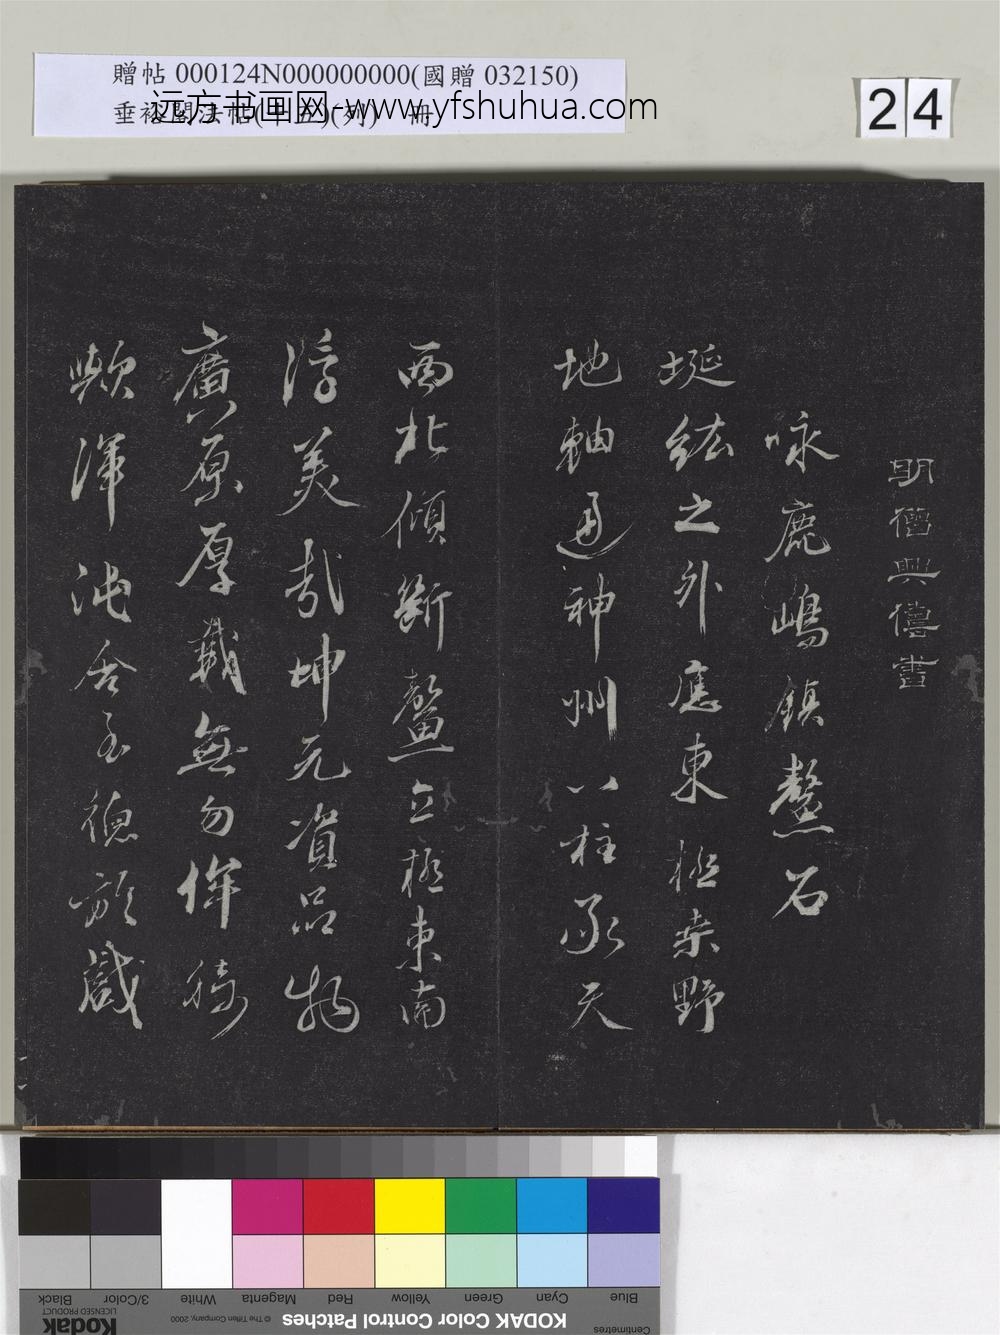 贈帖 000124N000000000(國贈 032150)
垂裕閣法帖(十五)(列) 冊
远方书画网-www.yfshuhua.com
24
明僧興儔書
咏鹿嶋鎮鼇石
埏紘之外應東極桑野
地軸通神州八柱承天
西北傾斷鼇立極東南
浮美哉坤元資品物
廣原厚載無勿侔猗
歟渾沌含至德
Blue
Cyan
Green
Yellow
Red
Magenta
White
3/Color
Black
KODAK Color Control Patches
© The Tiffen Company, 2000
Kodak
LICENSED PRODUCT
Centimetres